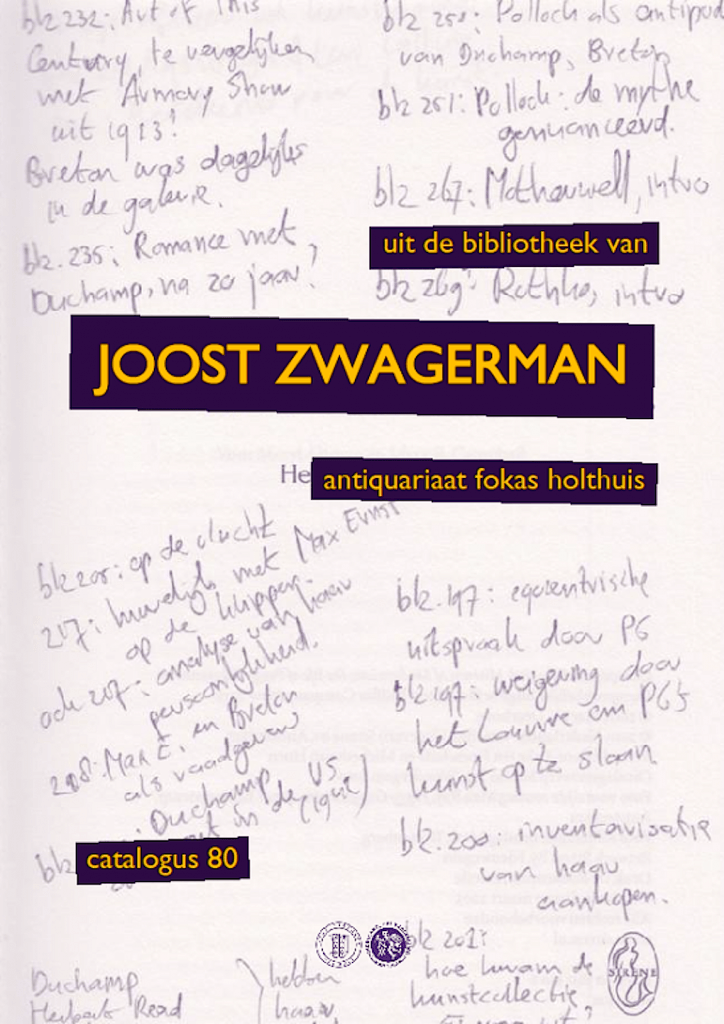 blz 232: Art of This
Century, te vergelijken
met Armory Show
uit 1913!
Breton was dagelijks
in de galerie.
blz. 235: Romance met
Duchamp, na 20 jaar?
blz 250: Pollock als antipod
van Duchamp, Breton
blz 251: Pollock: de mythe
genuanceerd.
blz 267: Motherwell, intro
uit de bibliotheek van
blz 269: Rothko, intro
JOOST ZWAGERMAN
He
antiquariaat fokas holthuis
blz 205: op de vlucht
207: huwelijk met Max Ernst
op de klippen.
ook 207: analyse van haar
persoonlijkheid.
208: Max E. en Breton
als raadgevers
Duchamp
in de US
blz
blz. 197: egocentrische
uitspraak door PG
blz 197: weigering door
het Louvre om PG's
kunst op te slaan
blz. 200: inventarisatie
van haar
aankopen.
catalogus 80
blz 201:
hoe kwam de
kunstcollectie
Duchamp
Herbert Read
hebben
haar
SIRENE